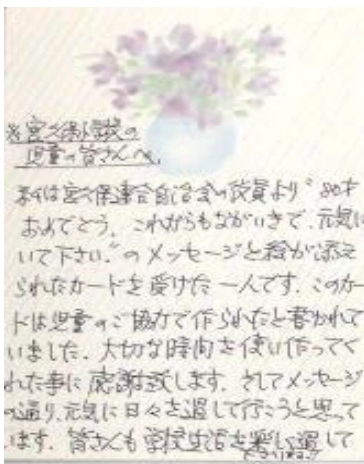 ※宮久保小学校の
児童の皆さんへ
私は宮久保連合自治会の役員より“80才
おめでとう。これからもながいきで、元気に
いて下さい。”のメッセージと絵が添え
られたカードを受けた一人です。このカー
ドは児童のご協力で作られたと書かれて
いました。大切な時間を使い作ってく
れた事に感謝致します。そしてメッセージ
の通り、元気に日々を過して行こうと思って
います。皆さんも学校生活を楽しい過して
下さいね!!